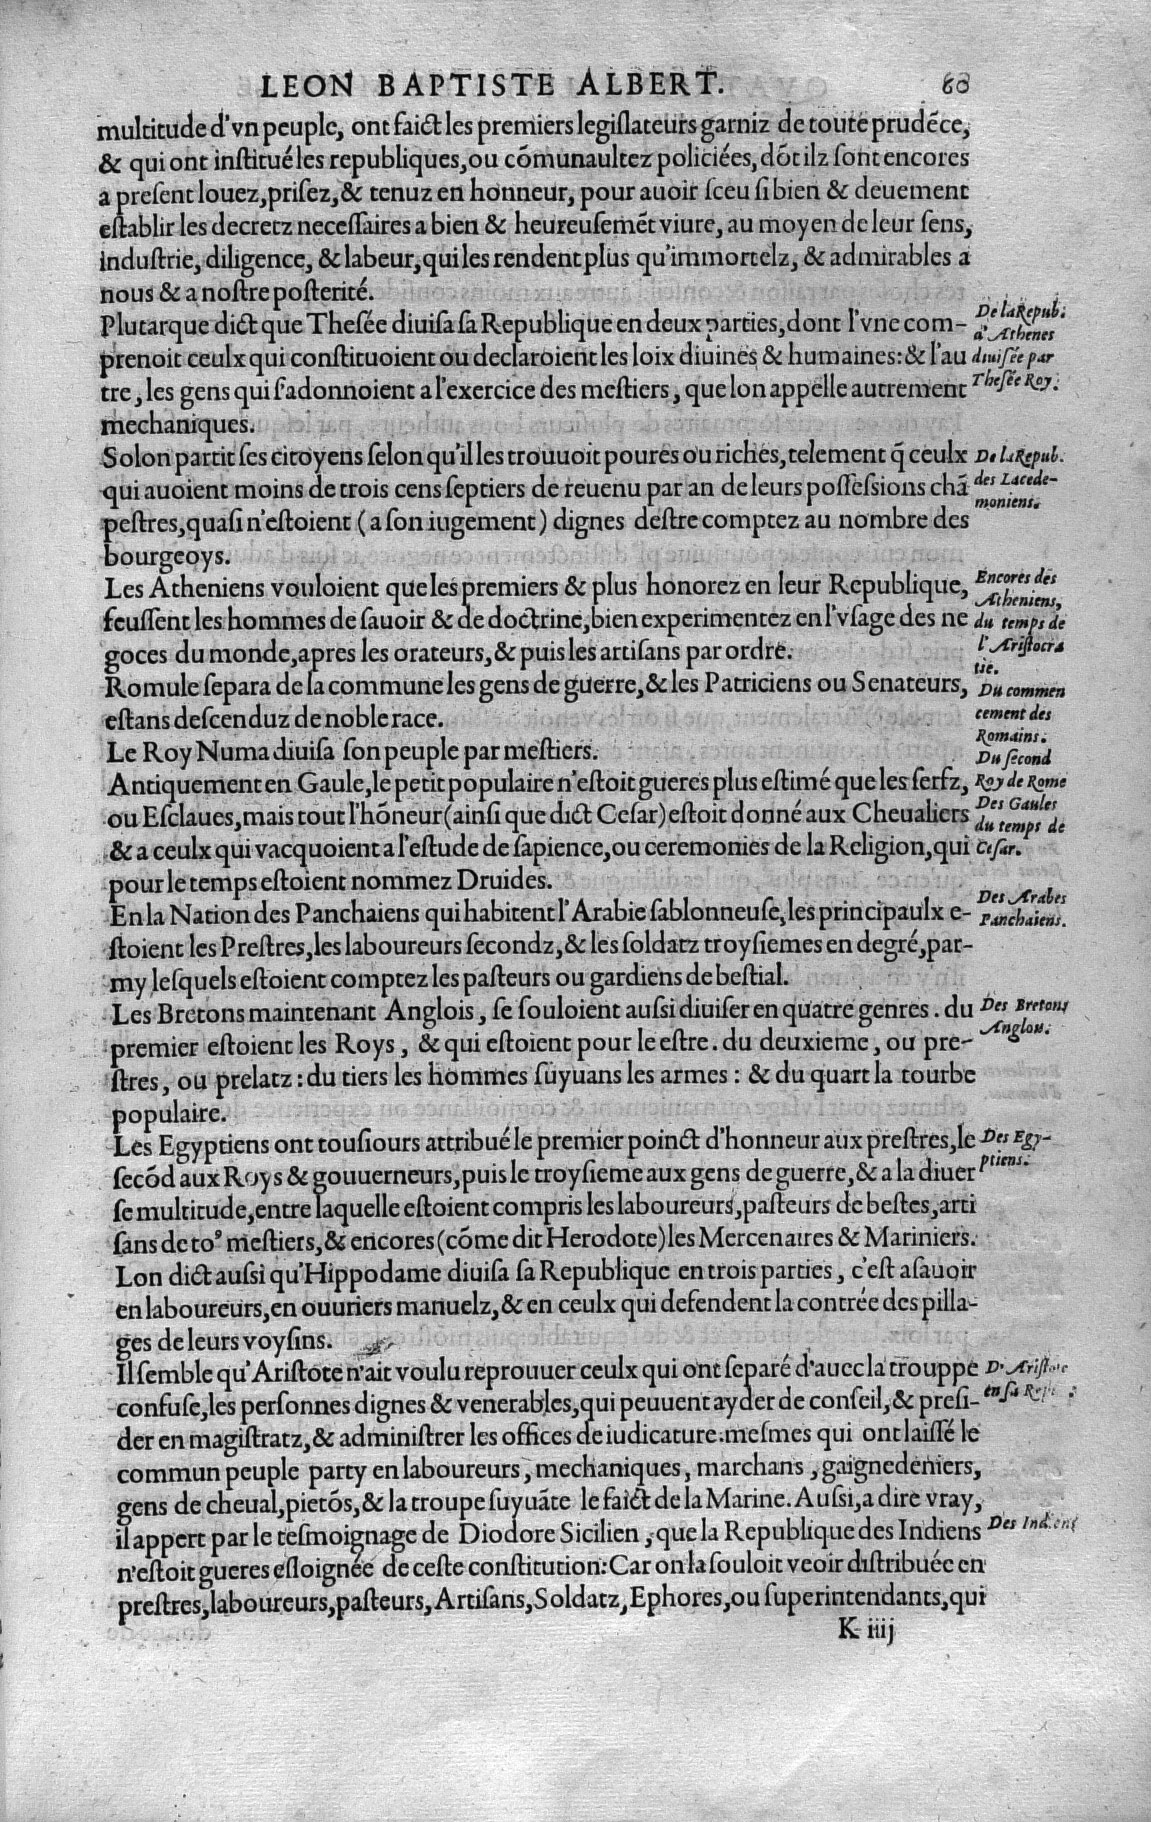 LEON BAPTISTE ALBERT. 60
multitude d'vn peuple, ont faict les premiers legiſlateurs garniz de toute prudēce,
& qui ont inſtitué les republiques, ou cōmunaultez policiées, dōt ilz ſont encores
a preſent louez, priſez, & tenuz en honneur, pour auoir ſceu ſi bien & deuement
eſtablir les decretz neceſſaires a bien & heureuſemēt viure, au moyen de leur ſens,
induſtrie, diligence, & labeur, qui les rendent plus qu'immortelz, & admirables a
nous & a noſtre poſterité.
Plutarque dict que Theſée diuiſa ſa Republique en deux parties, dont l'vne com-
prenoit ceulx qui conſtituoient ou declaroient les loix diuines & humaines: & l'au
tre, les gens qui ſ'adonnoient a l'exercice des meſtiers, que lon appelle autrement
mechaniques.
De la Repub.
d'Athenes
diuiſée par
Theſée Roy.
Solon partit ſes citoyens ſelon qu'il les trouuoit poures ou riches, telement q̄ ceulx
qui auoient moins de trois cens ſeptiers de reuenu par an de leurs poſſeſſions chā
peſtres, quaſi n'eſtoient (a ſon iugement) dignes deſtre comptez au nombre des
bourgeoys.
De la Repub.
des Lacede-
moniens.
Les Atheniens vouloient que les premiers & plus honorez en leur Republique,
feuſſent les hommes de ſauoir & de doctrine, bien experimentez en l'vſage des ne
goces du monde, apres les orateurs, & puis les artiſans par ordre.
Encores des
Atheniens,
du temps de
l'Ariſtocra
tie.
Romule ſepara de ſa commune les gens de guerre, & les Patriciens ou Senateurs,
eſtans deſcenduz de noble race.
Du commen
cement des
Romains.
Le Roy Numa diuiſa ſon peuple par meſtiers.
Du ſecond
Roy de Rome
Antiquement en Gaule, le petit populaire n'eſtoit gueres plus eſtimé que les ſerfz,
ou Eſclaues, mais tout l'hōneur (ainſi que dict Ceſar) eſtoit donné aux Cheualiers
& a ceulx qui vacquoient a l'eſtude de ſapience, ou ceremonies de la Religion, qui
pour le temps eſtoient nommez Druides.
Des Gaules
du temps de
Ceſar.
En la Nation des Panchaiens qui habitent l'Arabie ſablonneuſe, les principaulx e-
ſtoient les Preſtres, les laboureurs ſecondz, & les ſoldatz troyſiemes en degré, par-
my leſquels eſtoient comptez les paſteurs ou gardiens de beſtial.
Des Arabes
Panchaiens.
Les Bretons maintenant Anglois, ſe ſouloient auſſi diuiſer en quatre genres. du
premier eſtoient les Roys, & qui eſtoient pour le eſtre. du deuxieme, ou pre-
ſtres, ou prelatz: du tiers les hommes ſuyuans les armes: & du quart la tourbe
populaire.
Des Bretons
Anglois.
Les Egyptiens ont touſiours attribué le premier poinct d'honneur aux preſtres, le
ſecōd aux Roys & gouuerneurs, puis le troyſieme aux gens de guerre, & a la diuer
ſe multitude, entre laquelle eſtoient compris les laboureurs, paſteurs de beſtes, arti
ſans de toꝰ meſtiers, & encores (cōme dit Herodote) les Mercenaires & Mariniers.
Des Egy-
ptiens.
Lon dict auſſi qu'Hippodame diuiſa ſa Republique en trois parties, c'eſt aſauoir
en laboureurs, en ouuriers manuelz, & en ceulx qui defendent la contrée des pilla-
ges de leurs voyſins.
Il ſemble qu'Ariſtote n'ait voulu reprouuer ceulx qui ont ſeparé d'auec la trouppe
confuſe, les perſonnes dignes & venerables, qui peuuent ayder de conſeil, & preſi-
der en magiſtratz, & adminiſtrer les offices de iudicature. meſmes qui ont laiſſé le
commun peuple party en laboureurs, mechaniques, marchans, gaignedeniers,
gens de cheual, pietōs, & la troupe ſuyuāte le faict de la Marine. Auſſi, a dire vray,
D'Ariſtote
en ſa
il appert par le teſmoignage de Diodore Sicilien, que la Republique des Indiens
n'eſtoit gueres eſloignée de ceſte conſtitution: Car on la ſouloit veoir diſtribuée en
preſtres, laboureurs, paſteurs, Artiſans, Soldatz, Ephores, ou ſuperintendants, qui
Des Indiens
K iiij